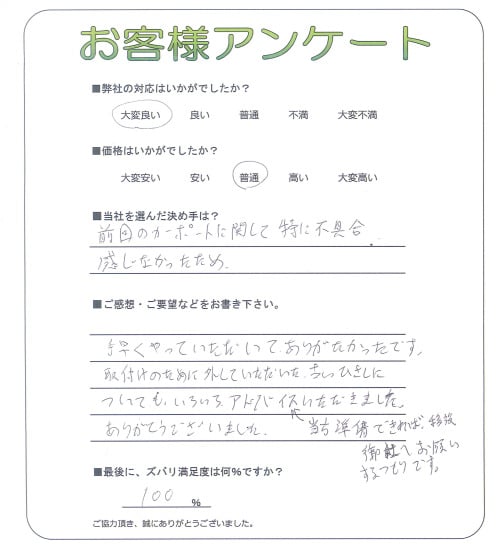 お客様アンケート
■弊社の対応はいかがでしたか？
大変良い 良い 普通 不満 大変不満
■価格はいかがでしたか？
大変安い 安い 普通 高い 大変高い
■当社を選んだ決め手は？
前回のカーポートに関して特に不具合
感じなかったため.
■ご感想・ご要望などをお書き下さい。
手早くやっていただいて、ありがたかったです。
取付けのために外していただいた、ちっひきしに
ついても、いろいろ、アドバイスいただきました。
ありがとうございました。 当方準備できれば、
御社へお願い
するつもりです。
■最後に、ズバリ満足度は何％ですか？
100 %
ご協力頂き、誠にありがとうございました。